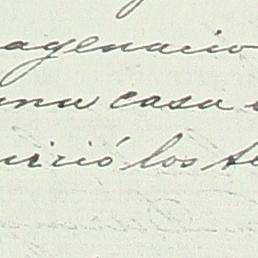 agenario
una casa
uirió los te